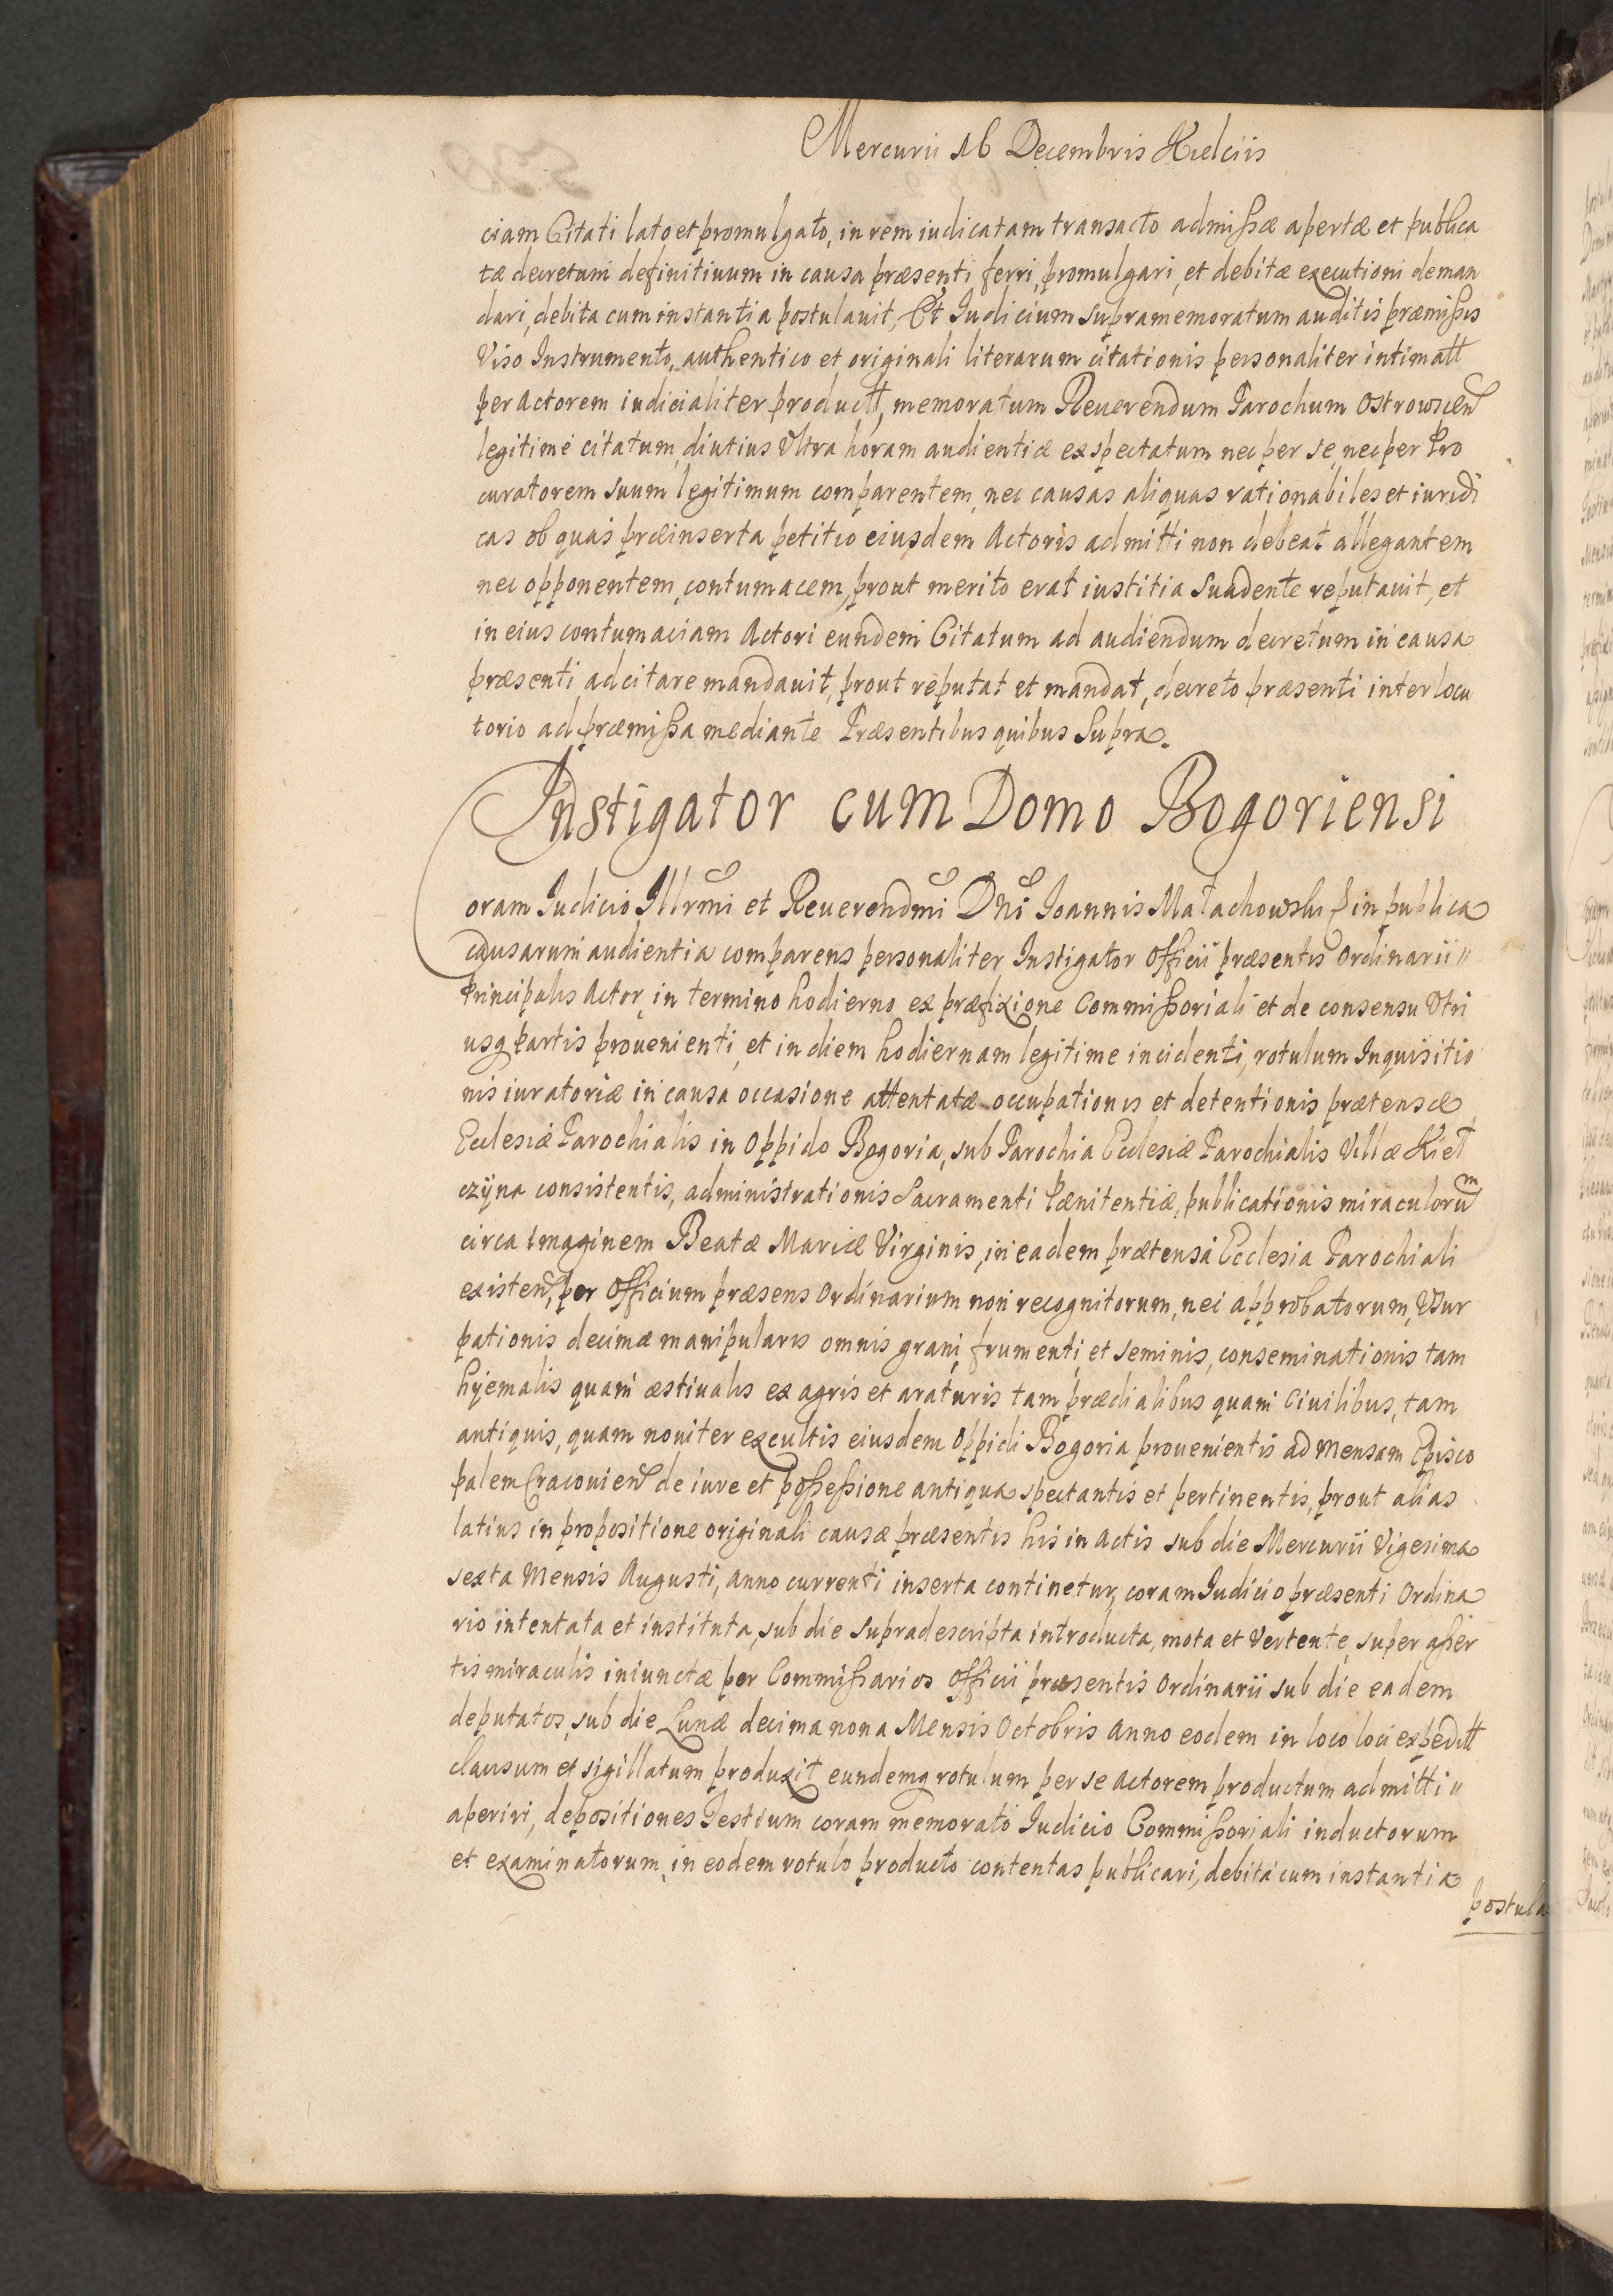 Mercurii 16 Decembris Kielciis
ciam Citati lato et promulgato, in rem iudicatam transacto admissæ apertæ et publica
tæ decretum definitiuum in causa præsenti ferri, promulgari, et debitæ executioni deman
dari, debita cum instantia postulauit, Et Iudicium supramemoratum auditis præmissis
Viso Instrumento, authentico et originali literarum citationis personaliter intimatt
per Actorem iudicialiter productt, memoratum Reuerendum Parochum Ostrowscien
legitime citatum, diutius Ultra horam audientiæ exspectatum nec per se, nec per Pro
curatorem suum legitimum comparentem, nec causas aliquas rationabiles et iuridi
cas ob quas præinserta petitio eiusdem Actoris admitti non debeat allegantem
nec opponentem, contumacem, prout merito erat iustitia suadente reputauit, et
in eius contumaciam Actori eundem Citatum ad audiendum decretum in causa
præsenti adcitare mandauit, prout reputat et mandat, decreto præsenti interlocu
torio ad præmissa mediante Præsentibus quibus Supra.
Instigator cum Domo Bogoriensi
Coram Iudicio Illrmi et Reuerendmi Dni Ioannis Małachowski in publica
causarum audientia comparens personaliter Instigator Officii præsentis Ordinarii
Principalis Actor, in termino hodierno ex præfixione Commissoriali et de consensu Utri
usq partis prouenienti, et in diem hodiernam legitime incidenti, rotulum Inquisitio
nis iuratoriæ in causa occasione attentatæ occupationis et detentionis prætensæ
Ecclesiæ Parochialis in Oppido Bogoria, sub Parochia Ecclesiæ Parochialis Villæ Kieł
czyna consistentis, administrationis Sacramenti Pænitentiæ, publicationis miraculorum
circa Imaginem Beatæ Mariæ Virginis, in eadem prætensa Ecclesia Parochiali
existen, per Officium præsens Ordinarium non recognitorum, nec approbatorum, Usur
pationis decimæ manipularis omnis grani, frumenti, et seminis, conseminationis tam
hyemalis quam æstiualis ex agris et araturis tam prædialibus quam Ciuilibus, tam
antiquis, quam nouiter excultis eiusdem Oppidi Bogoria prouenientis ad Mensam Episco
palem Cracouien de iure et possessione antiqua spectantis et pertinentis, prout alias
latius in propositione originali causæ præsentis his in Actis sub die Mercurii Vigesima
sexta Mensis Augusti, anno currenti inserta continetur, coram Iudicio præsenti Ordina
rio intentata et instituta, sub die supradescripta introducta, mota et Vertente, super asser
tis miraculis iniunctæ per Commissarios Officii præsentis Ordinarii sub die eadem
deputatos, sub die Lunæ decima nona Mensis Octobris Anno eodem in loco loci expeditt
clausum et sigillatum produxit eundemq rotulum per se Actorem productum admitti
aperiri, depositiones Testium coram memorato Iudicio Commissoriali inductorum
et examinatorum, in eodem rotulo producto contentas publicari, debita cum instantia
postula